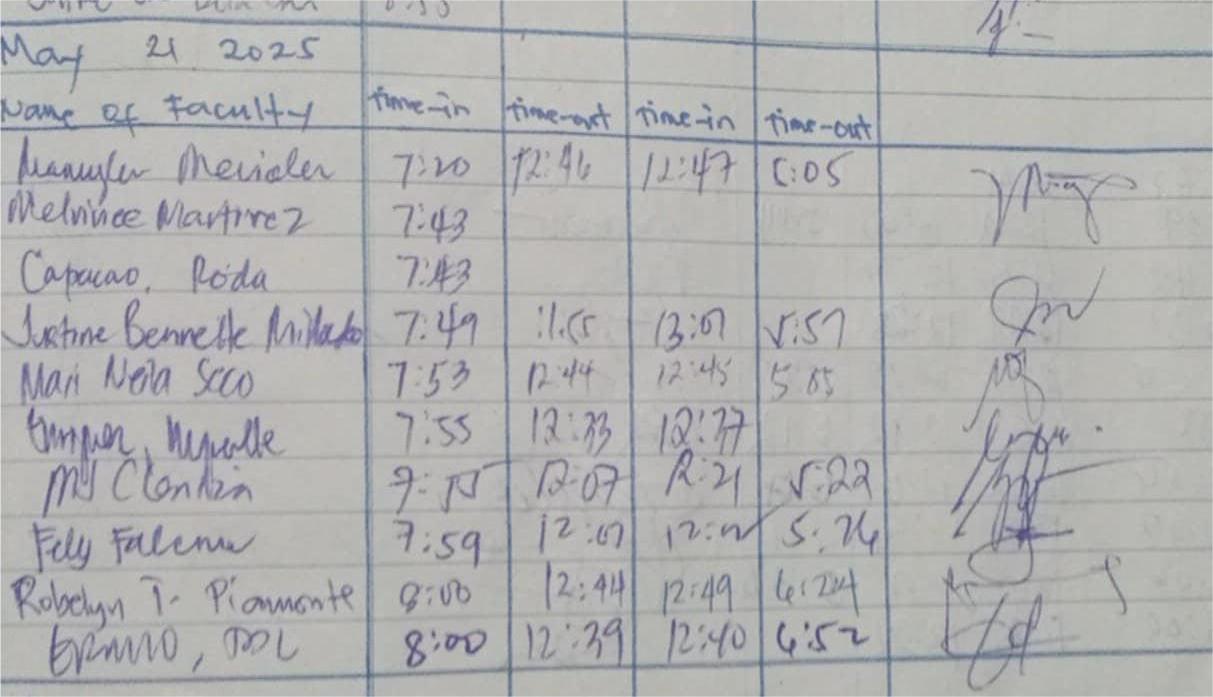 8:30
May 21 2025
Name of Faculty time-in time-out time-in time-out
7:20 12:46 12:47 5:05
Melvince Martinez 7:43
Capacao, Roda 7:43
Justine Bennette 7:49 11:55 13:01 5:57
Mari Neila Seco 7:53 12:44 12:45 5:05
7:55 12:33 12:37
MJ 12:07 12:21 5:22
Fely 7:59 12:01 5:26
Robelyn T. Piamonte 8:00 12:44 12:49 6:24
8:00 12:39 12:40 6:52